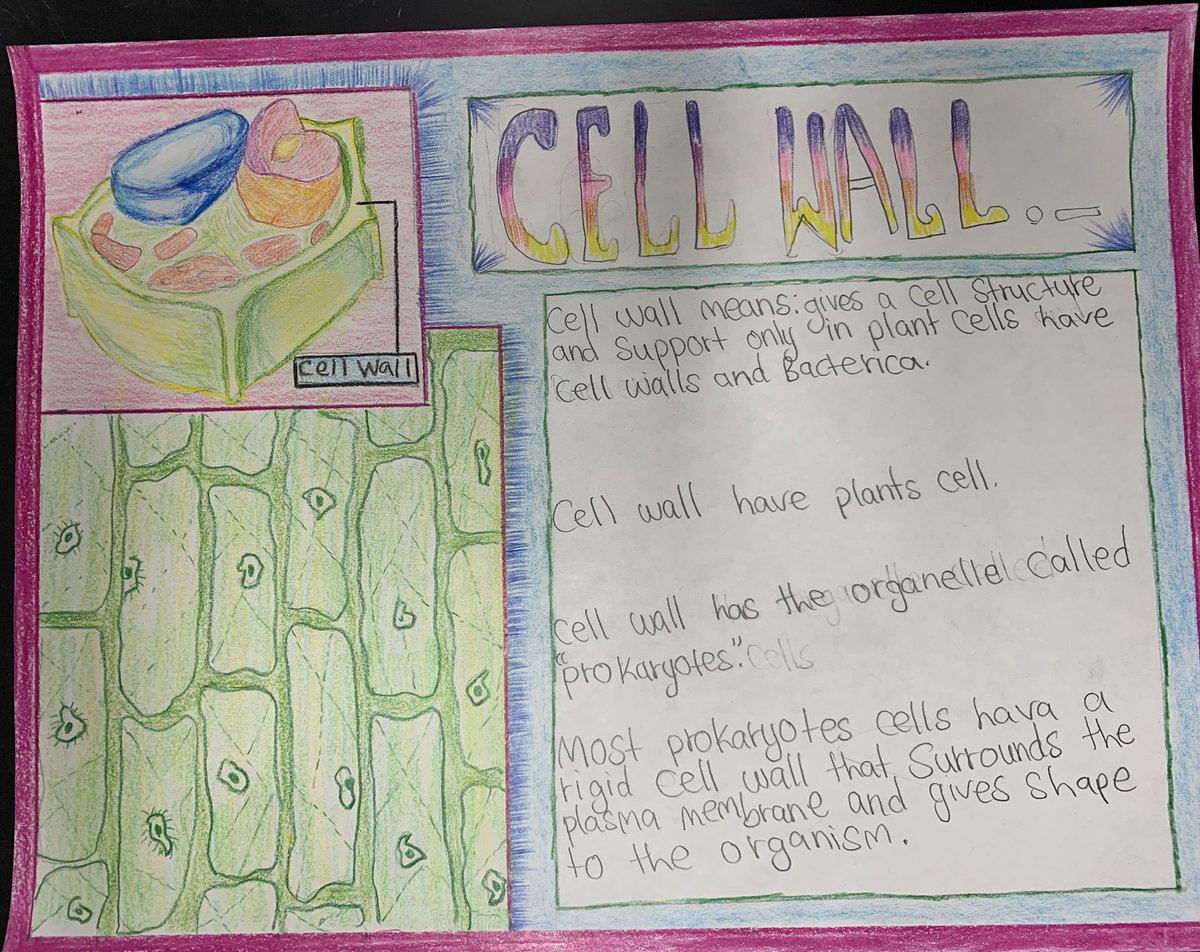 CELL WALL.
cell wall
Cell wall means: gives a cell structure
and support only in plant cells have
cell walls and Bacterica.
Cell wall have plants cell.
Cell wall has the organelle called
"prokaryotes". Cells
Most prokaryotes cells hava a
rigid cell wall that surrounds the
plasma membrane and gives shape
to the organism.